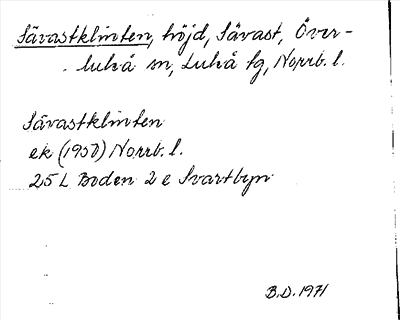 Sävastklinten, höjd, Sävast, Över-
luleå sn, Luleå tg, Norrb. l.
Sävastklinten
ek (1950) Norrb. l.
25 L Boden 2 e Svartbyn
B.D. 1971